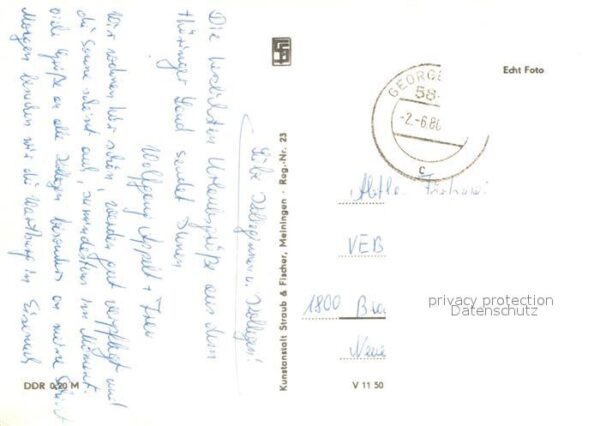 Liebe Kolleginnen u. Kollegen!
Die herzlichsten Urlaubsgrüße aus dem
thüringer Land sendet Ihnen
Wolfgang Appelt + Frau
Wir wohnen hier schön, werden gut verpflegt und
die Sonne scheint auch, zumindestens im Moment.
Viele Grüße an alle Kollegen besonders an meine
Morgen besuchen wir die Wartburg in Eisenach
Kunstanstalt Straub & Fischer, Meiningen · Reg.-Nr. 23
DDR 0,20 M
V 11 50
Echt Foto
GEORGE
58
-2.-6.80
c
VEB
1800 Bra
Neue
privacy protection
Datenschutz